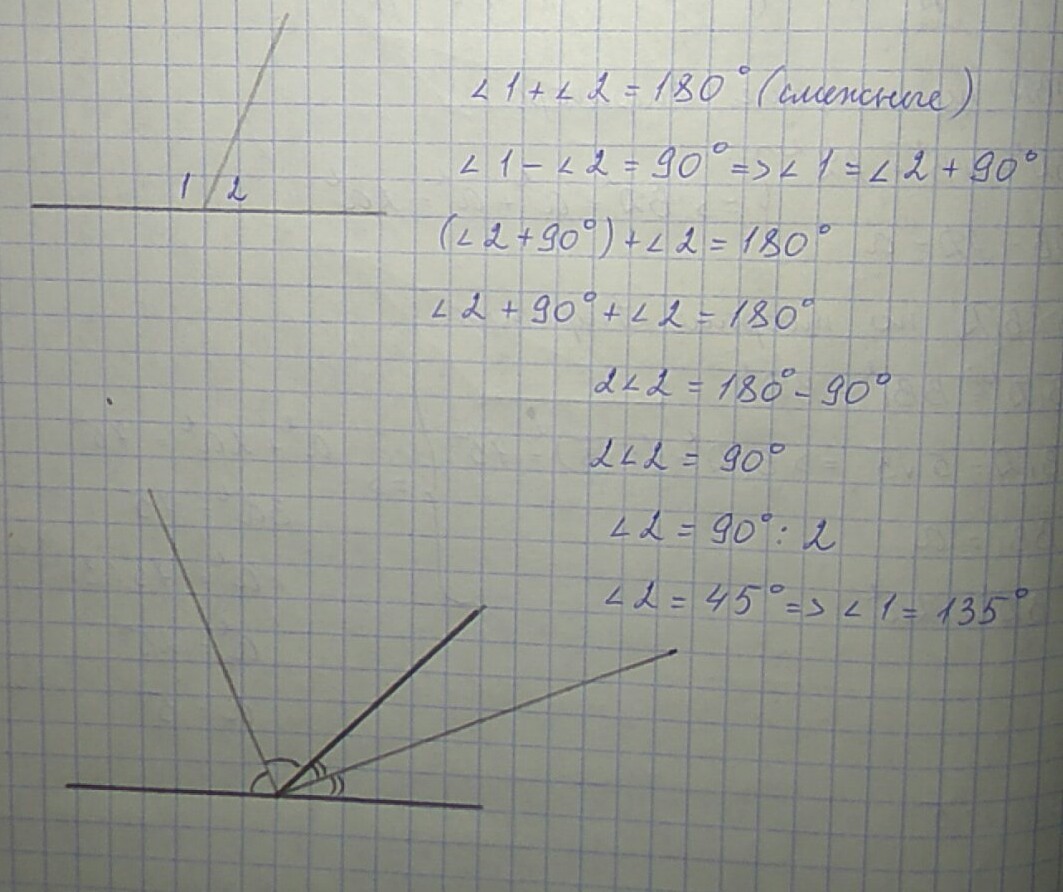 ∠1+∠2=180° (смежные)
1 2
∠1-∠2=90°=>∠1=∠2+90°
(∠2+90°)+∠2=180°
∠2+90°+∠2=180°
2∠2=180°-90°
2∠2=90°
∠2=90°:2
∠2=45°=>∠1=135°